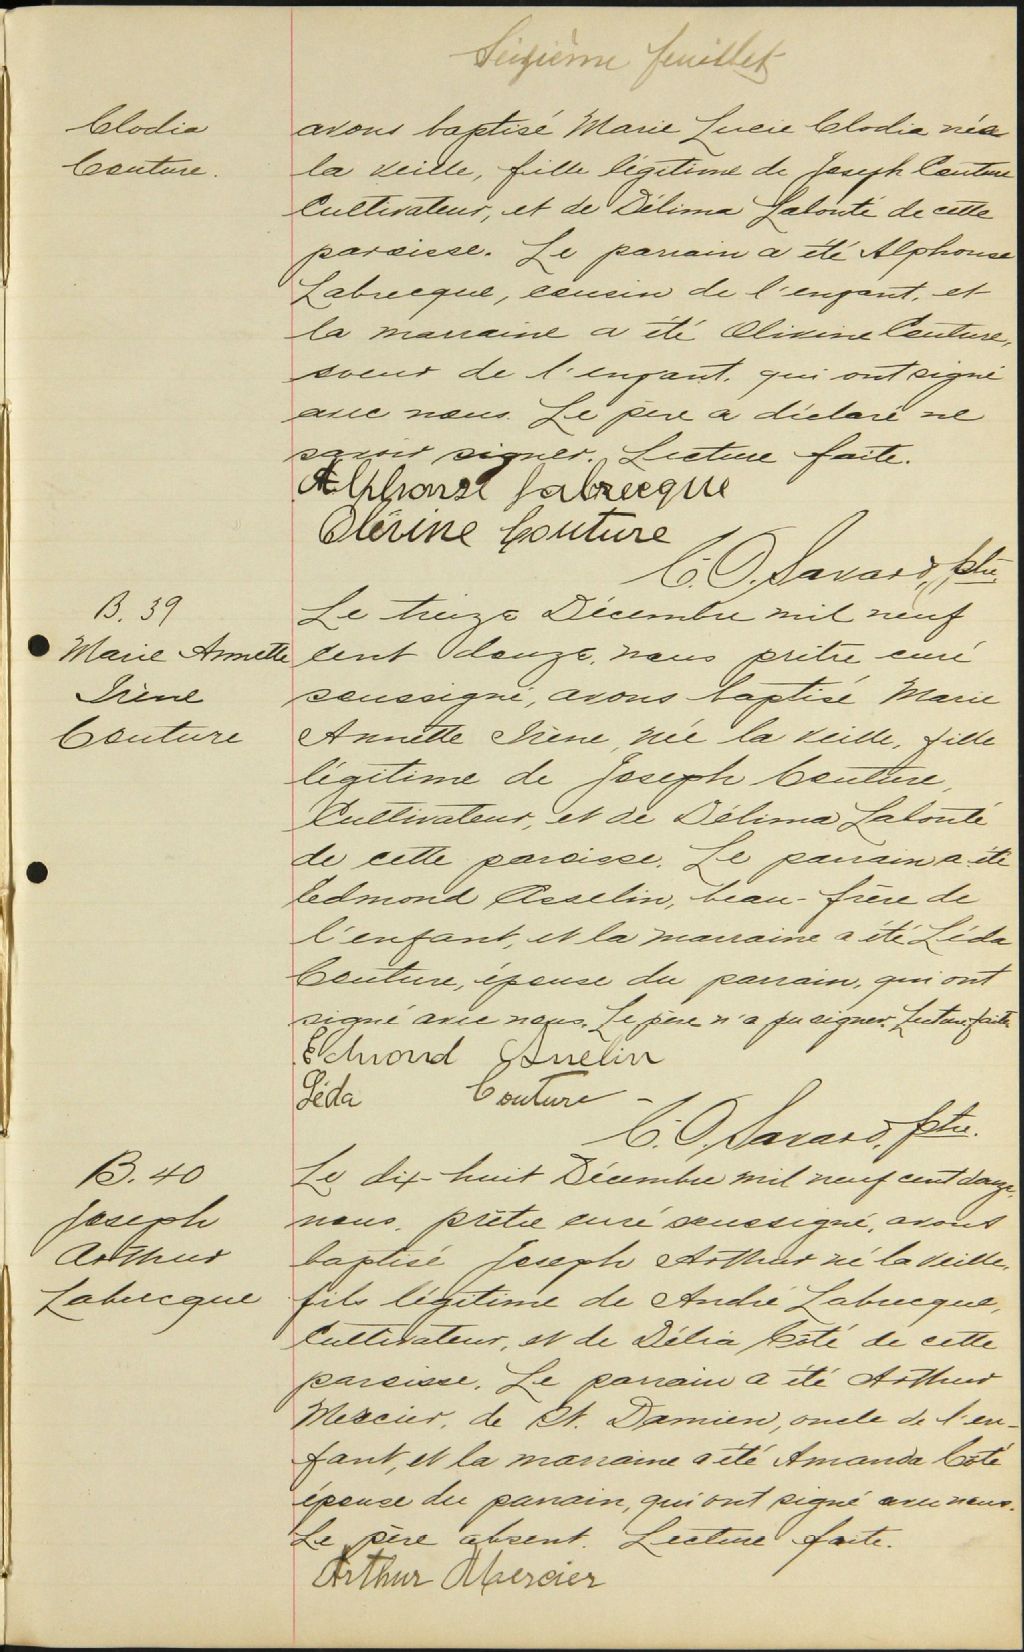 Seizième feuillet
Clodia
Couture.
avons baptisé Marie Lucie Clodia née
la veille, fille légitime de Joseph Couture
Cultivateur, et de Délima Labonté de cette
paroisse. Le parrain a été Alphonse
Labrecque, cousin de l'enfant, et
la marraine a été Olivine Couture,
soeur de l'enfant, qui ont signé
avec nous. Le père a déclaré ne
savoir signer. Lecture faite.
Alphonse Labrecque
Olévine Couture
C. O. Savard, ptre.
B. 39
Marie Annette
Irène
Couture
Le treize Décembre mil neuf
cent douze, nous prêtre curé
soussigné, avons baptisé Marie
Annette Irène, née la veille, fille
légitime de Joseph Couture,
Cultivateur, et de Délima Labonté
de cette paroisse. Le parrain a été
Edmond Asselin, beau-frère de
l'enfant, et la marraine a été Léda
Couture, épouse du parrain, qui ont
signé avec nous. Le père n'a pu signer. Lecture faite
Edmond Asselin
Léda Couture
C. O. Savard, ptre.
B. 40
Joseph
Arthur
Labrecque
Le dix-huit Décembre mil neuf cent douze,
nous, prêtre curé soussigné, avons
baptisé Joseph Arthur né la veille,
fils légitime de André Labrecque,
Cultivateur, et de Délia Coté de cette
paroisse. Le parrain a été Arthur
Mercier, de St. Damien, oncle de l'en-
fant, et la marraine a été Amanda Coté
épouse du parrain, qui ont signé avec nous.
Le père absent. Lecture faite.
Arthur Mercier